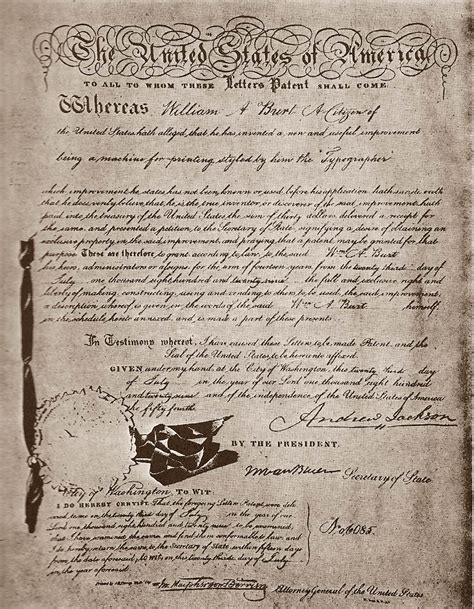 The United States of America
TO ALL TO WHOM THESE Letters Patent SHALL COME.
Whereas William A Burt A Citizen of
the United States, hath alleged, that he has invented a new and useful improvement
being a machine for printing styled by him the "Typographer
which improvement, he states, has not been known or used, before his application, hath made oath
that he does verily believe, that he is the true inventor or discoverer of the said improvement, hath
paid into the treasury of the United States the sum of thirty dollars delivered a receipt for
the same, and presented a petition, to the Secretary of State, signifying a desire of obtaining an
exclusive property, in the said improvement, and praying that a patent may be granted for that
purpose. These are therefore to grant, according to law, to the said Wm A. Burt
his heirs, administrators or assigns, for the term of fourteen years, from the twenty third day of
July, one thousand eight hundred and twenty nine the full and exclusive right and
liberty of making, constructing, using and vending to others to be used, the said improvement,
a description, whereof is given, in the words of the said Wm A. Burt himself,
in the schedule hereto annexed, and is made a part of these presents.
In Testimony whereof, I have caused these Letters to be made Patent, and the
Seal of the United States, to be hereunto affixed.
GIVEN under my hand, at the City of Washington, this twenty third day of
July in the year of our Lord one thousand eight hundred
and twenty nine and of the independence of the United States of America
the fifty fourth.
Andrew Jackson
BY THE PRESIDENT.
M van Buren Secretary of State
City of Washington, TO WIT.
I DO HEREBY CERTIFY That the foregoing Letters Patent, were deli
vered to me on the twenty third day of July in the year of our
Lord one thousand eight hundred and twenty nine to be examined;
that I have examined the same, and find them conformable to law; and
I do hereby return the same, to the Secretary of State, within fifteen days
from the date aforesaid; to wit; on this twenty third day of July
in the year aforesaid
No 6085.
Attorney General of the United States